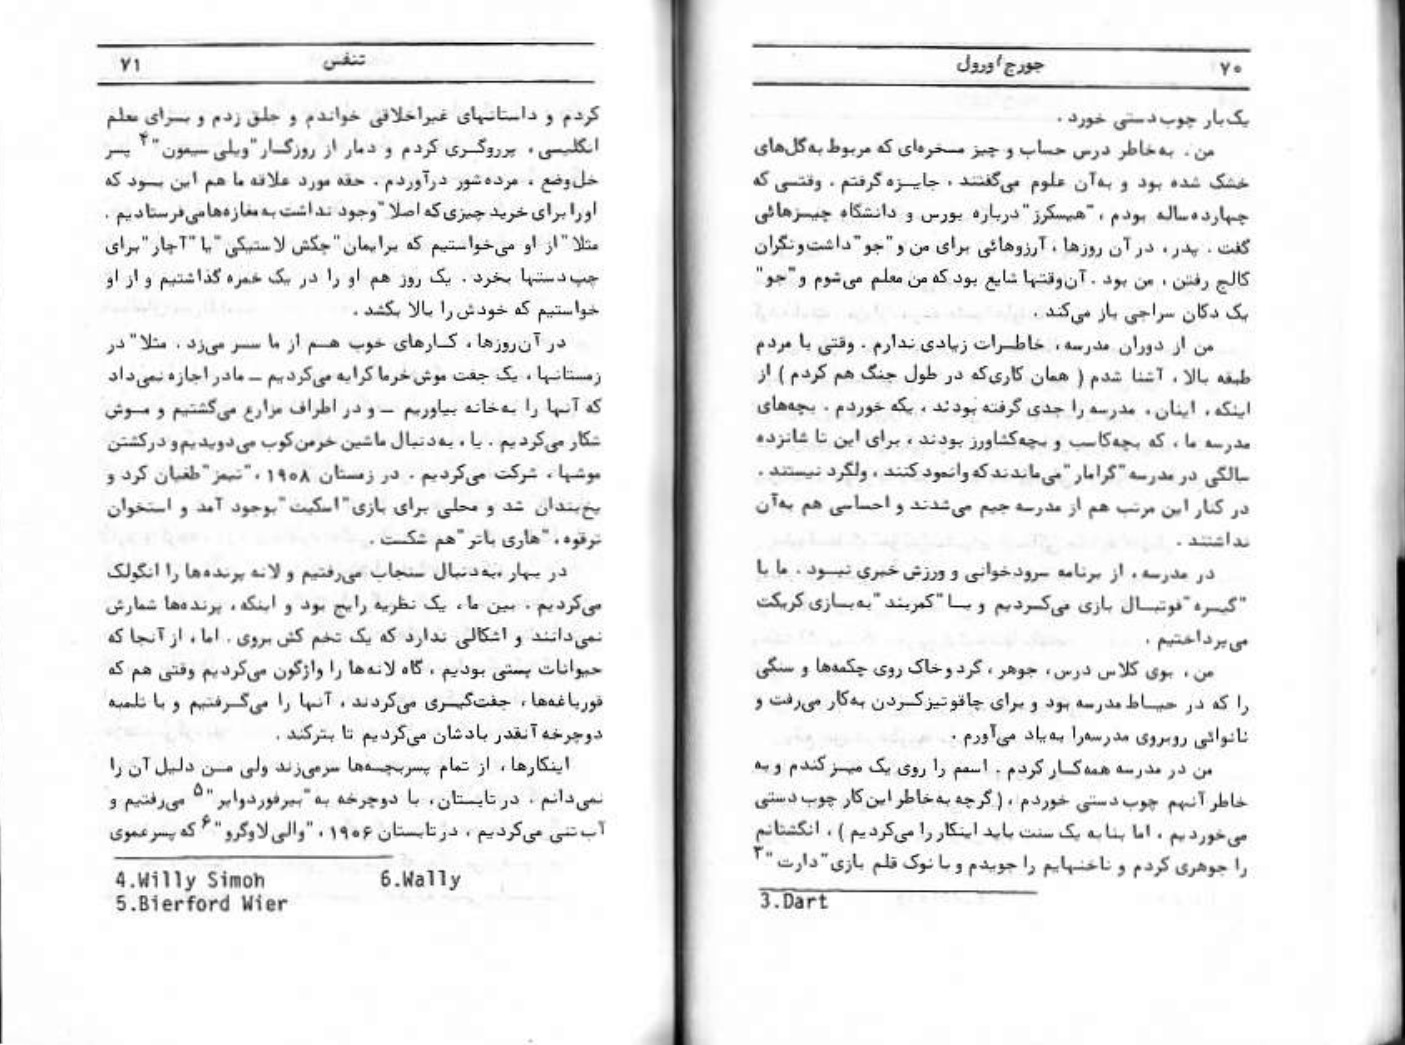 ۷۰ جورج اورول
یک‌بار چوب‌دستی خورد.
من، به‌خاطر درس حساب و چیز مسخره‌ای که مربوط به‌گل‌های
خشک شده بود و به‌آن علوم می‌گفتند، جایزه گرفتم. وقتی که
چهارده‌ساله بودم، "هیسکرز" درباره بورس و دانشگاه چیزهائی
گفت. پدر، در آن روزها، آرزوهائی برای من و "جو" داشت و نگران
کالج رفتن، من بود. آن‌وقتها شایع بود که من معلم می‌شوم و "جو"
یک دکان سراجی باز می‌کند.
من از دوران مدرسه، خاطرات زیادی ندارم. وقتی با مردم
طبقه بالا، آشنا شدم (همان کاری‌که در طول جنگ هم کردم) از
اینکه، اینان، مدرسه را جدی گرفته بودند، یکه خوردم. بچه‌های
مدرسه ما، که بچه‌کاسب و بچه‌کشاورز بودند، برای این تا شانزده
سالگی در مدرسه "گرامار" می‌ماندند که وانمود کنند، ولگرد نیستند.
در کنار این مرتب هم از مدرسه جیم می‌شدند و احساسی هم به‌آن
نداشتند.
در مدرسه، از برنامه سرودخوانی و ورزش خبری نبود. ما با
"گیره" فوتبال بازی می‌کردیم و با "کمربند" به‌بازی کریکت
می‌پرداختیم.
من، بوی کلاس درس، جوهر، گرد و خاک روی چکمه‌ها و سنگی
را که در حیاط مدرسه بود و برای چاقو تیزکردن به‌کار می‌رفت و
نانوائی روبروی مدرسه‌را به‌یاد می‌آورم.
من در مدرسه همه‌کار کردم. اسمم را روی یک میز کندم و به
خاطر آنهم چوب‌دستی خوردم، (گرچه به‌خاطر این‌کار چوب‌دستی
می‌خوردیم، اما بنا به یک سنت باید اینکار را می‌کردیم)، انگشتانم
را جوهری کردم و ناخنهایم را جویدم و با نوک قلم بازی "دارت"۳
3.Dart
تنفس ۷۱
کردم و داستانهای غیراخلاقی خواندم و جلق زدم و برای معلم
انگلیسی، پرروگری کردم و دمار از روزگار "ویلی سیمون"۴ پسر
خل‌وضع، مرده‌شور درآوردم. حقه مورد علاقه ما هم این بود که
او را برای خرید چیزی که اصلا" وجود نداشت به مغازه‌ها می‌فرستادیم.
مثلا" از او می‌خواستیم که برایمان "چکش لاستیکی" یا "آچار" برای
چپ‌دستها بخرد. یک روز هم او را در یک خمره گذاشتیم و از او
خواستیم که خودش را بالا بکشد.
در آن‌روزها، کارهای خوب هم از ما سر می‌زد. مثلا" در
زمستانها، یک جفت موش‌خرما کرایه می‌کردیم ــ مادر اجازه نمی‌داد
که آنها را به‌خانه بیاوریم ــ و در اطراف مزارع می‌گشتیم و موش
شکار می‌کردیم. یا، به‌دنبال ماشین خرمن‌کوب می‌دویدیم و در کشتن
موشها، شرکت می‌کردیم. در زمستان ۱۹۰۸، "تیمز" طغیان کرد و
یخ‌بندان شد و محلی برای بازی "اسکیت" بوجود آمد و استخوان
ترقوه، "هاری باتر" هم شکست.
در بهار، به‌دنبال سنجاب می‌رفتیم و لانه پرنده‌ها را انگولک
می‌کردیم. بین ما، یک نظریه رایج بود و اینکه، پرنده‌ها شمارش
نمی‌دانند و اشکالی ندارد که یک تخم کش بروی. اما، از آنجا که
حیوانات پستی بودیم، گاه لانه‌ها را واژگون می‌کردیم وقتی هم که
قورباغه‌ها، جفت‌گیری می‌کردند، آنها را می‌گرفتیم و با تلمبه
دوچرخه آنقدر بادشان می‌کردیم تا بترکند.
اینکارها، از تمام پسربچه‌ها سرمی‌زند ولی من دلیل آن را
نمی‌دانم. در تابستان، با دوچرخه به "بیرفورد وایر"۵ می‌رفتیم و
آب‌تنی می‌کردیم، در تابستان ۱۹۰۶، "والی لاوگرو"۶ که پسرعموی
4.Willy Simoh 6.Wally
5.Bierford Wier